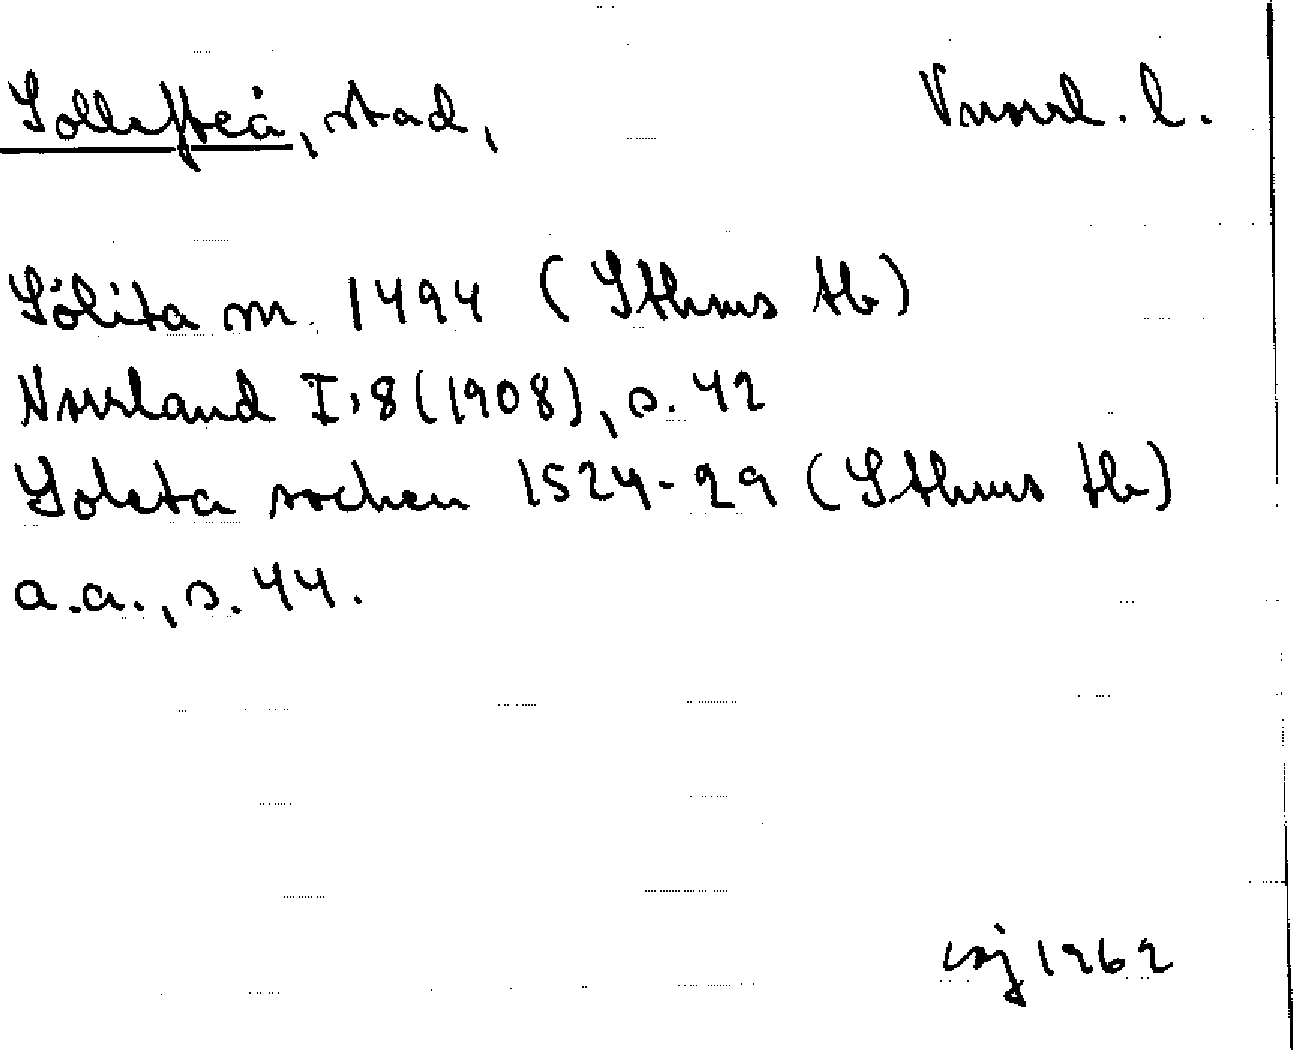 Sollefteå, stad, Vnorrl. l.
Sólita m. 1494 (Sthms tb)
Norrland I:8 (1908), s. 42
Soleta sochen 1524-29 (Sthms tb)
a.a., s. 44.
1962